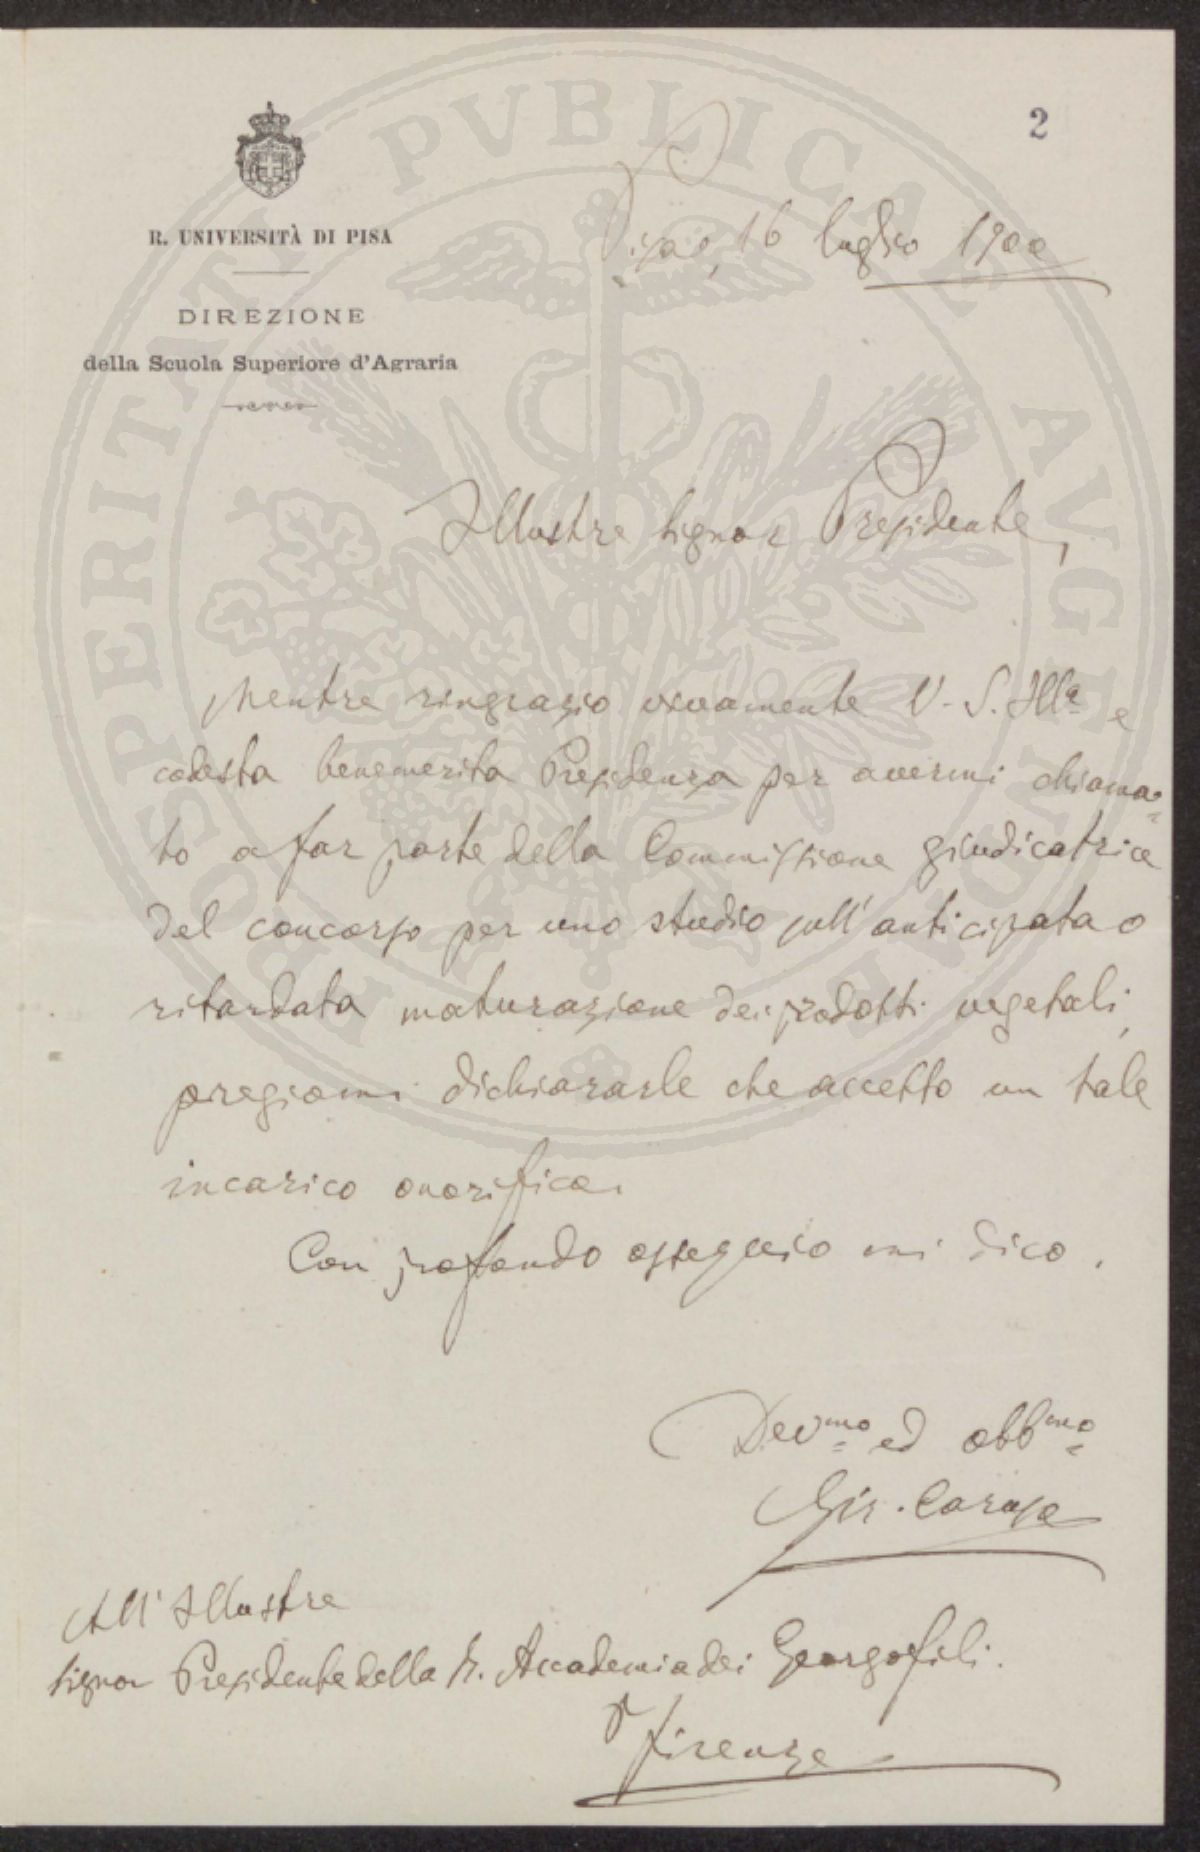 2
R. UNIVERSITÀ DI PISA
DIREZIONE
della Scuola Superiore d'Agraria
Pisa, 16 luglio 1900
Illustre Signor Presidente,
Mentre ringrazio vivamente V. S. Illa e
codesta benemerita Presidenza per avermi chiama=
to a far parte della Commissione giudicatrice
del concorso per uno studio sull'anticipata o
ritardata maturazione dei prodotti vegetali,
pregiomi dichiararle che accetto un tale
incarico onorifico.
Con profondo ossequio mi dico.
Devmo ed obbmo
Gir. Caruso
All'Illustre
Signor Presidente della R. Accademia dei Georgofili.
Firenze
PROSPERITATI PVBLICAE AVGENDAE